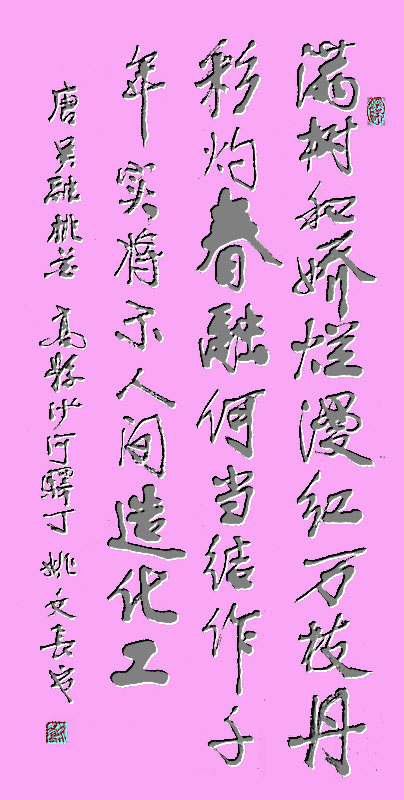 满树和娇烂漫红万枝丹
彩灼春融何当结作千
年实将示人间造化工
唐吴融桃花 高縣沙河驛丁 姚文長